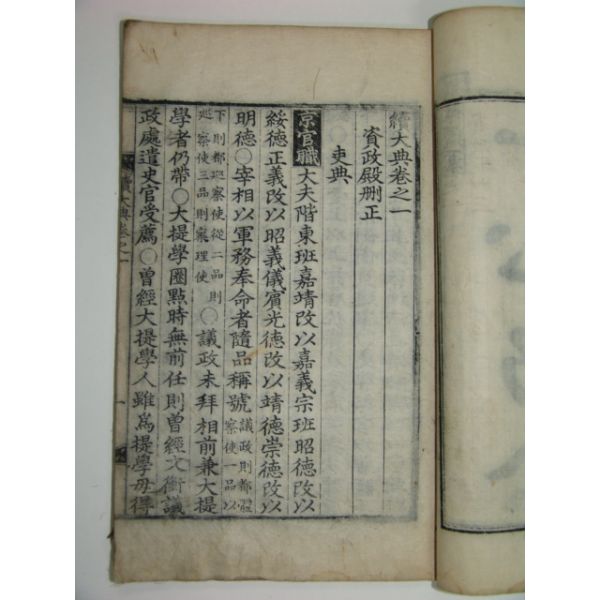 續大典卷之一
資政殿刪正
吏典
京官職 大夫階東班嘉靖改以嘉義宗班昭德改以
綏德正義改以昭義儀賓光德改以靖德崇德改以
明德○宰相以軍務奉命者隨品稱號 議政則都體察使一品以
下則都巡察使從二品則巡察使三品則察理使 ○議政未拜相前兼大提
學者仍帶○大提學圈點時無前任則曾經文衡議
政處遣史官受薦○曾經大提學人雖爲提學毋得
續大典卷之一
一